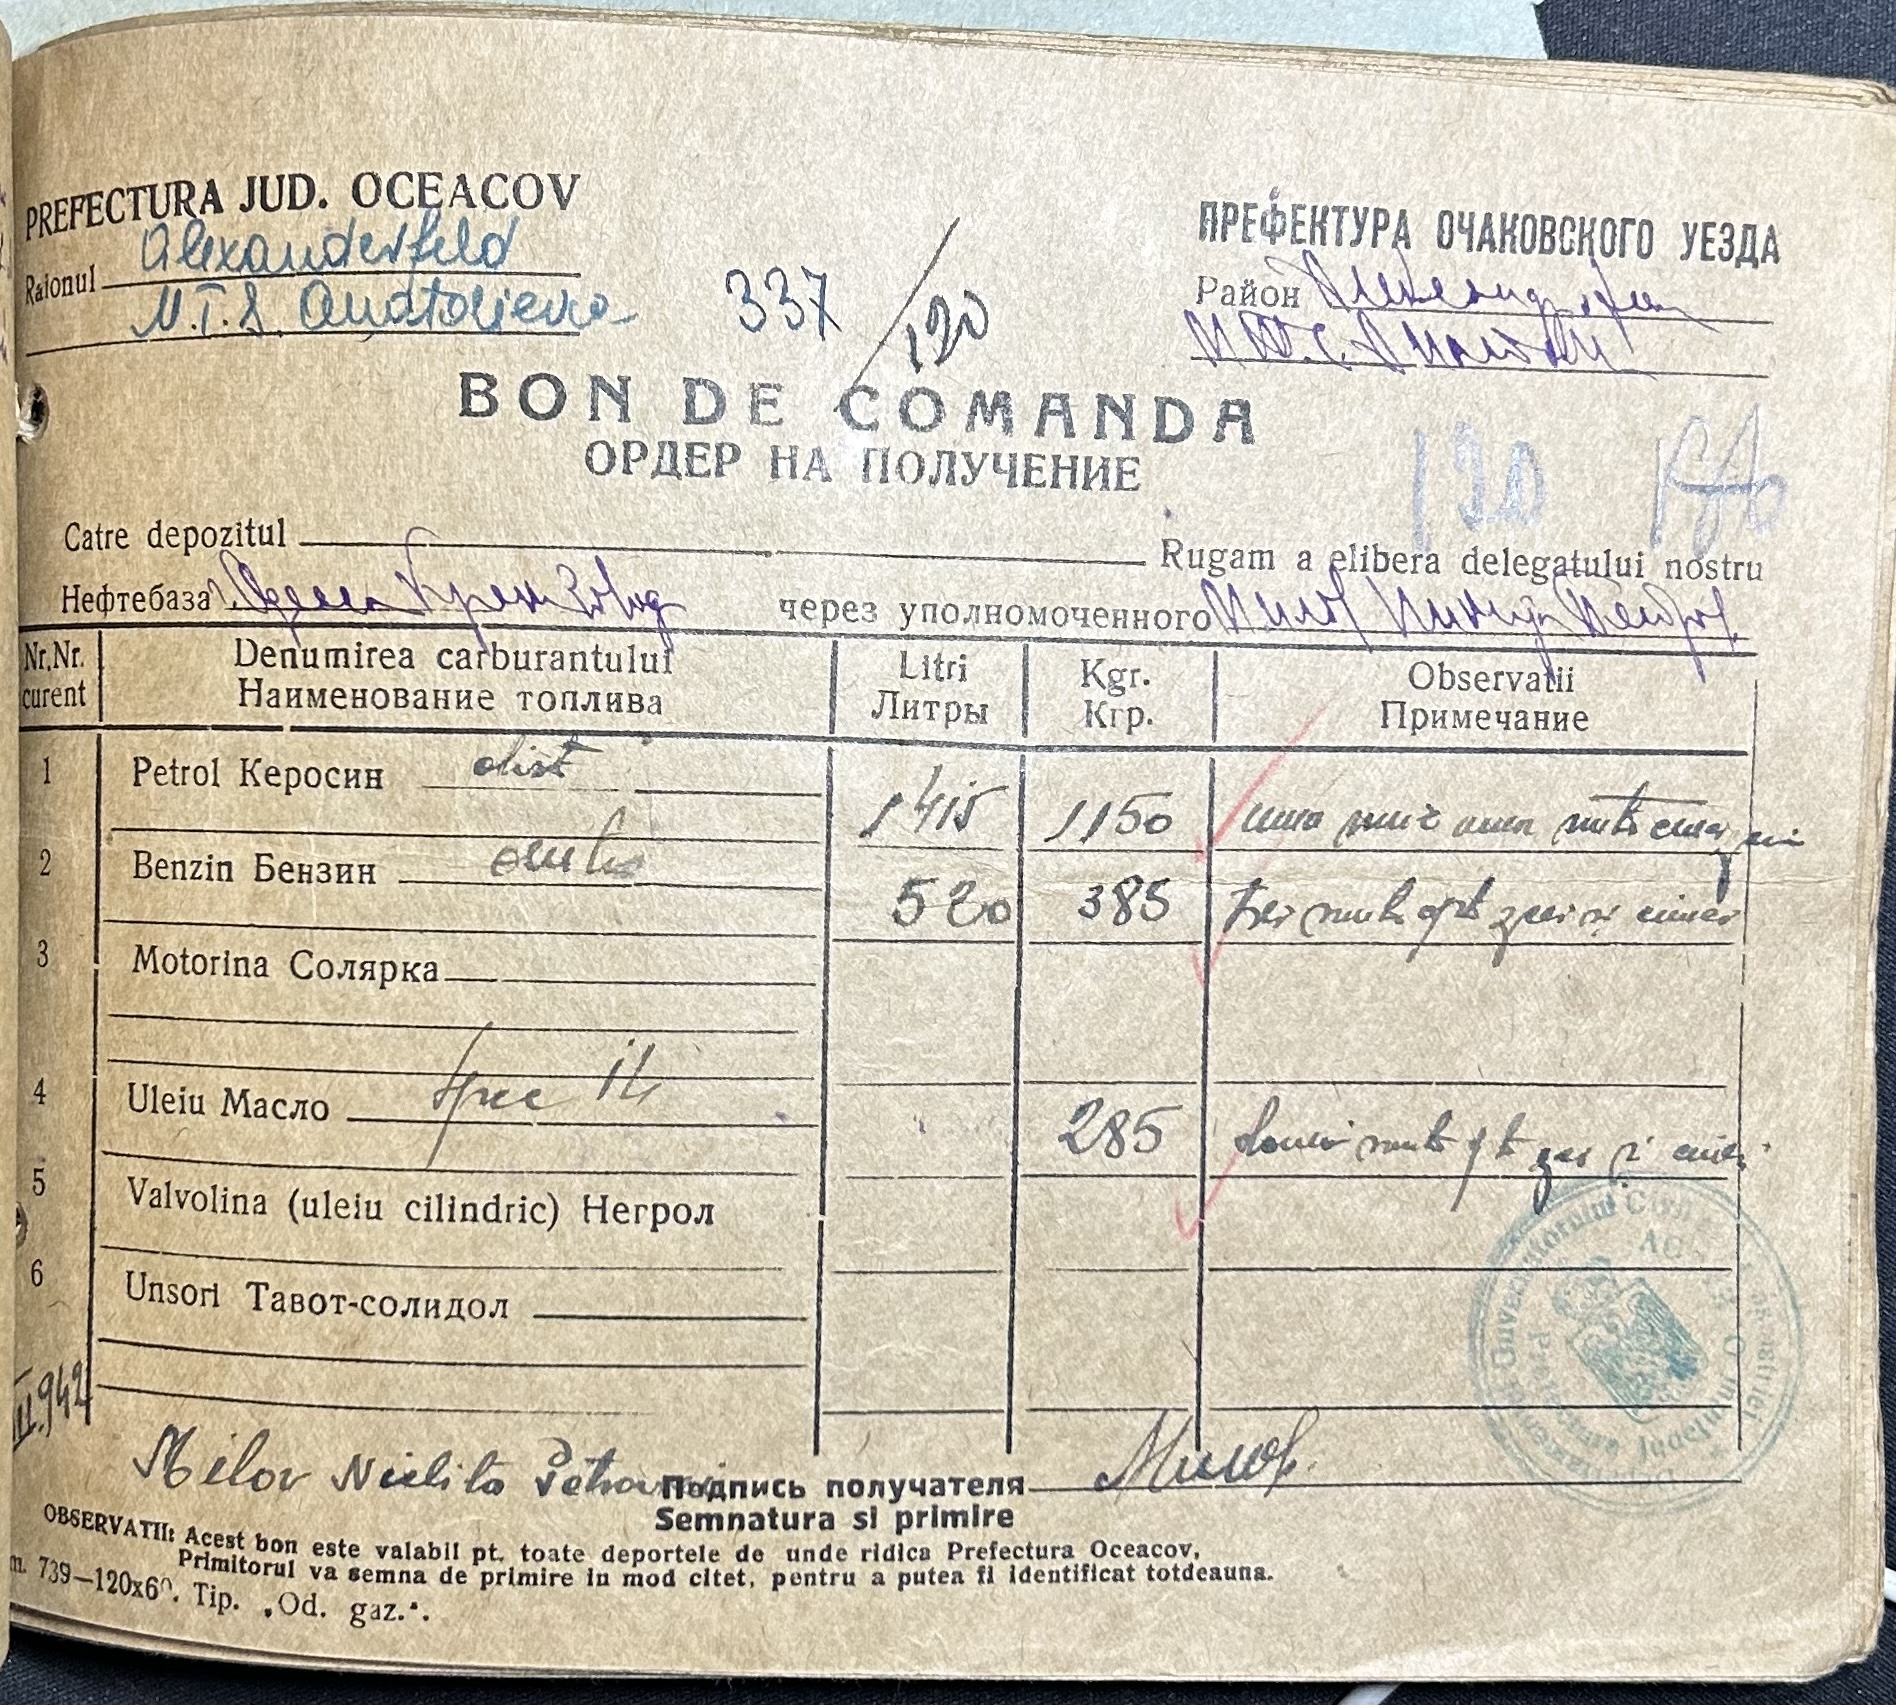 PREFECTURA JUD. OCEACOV
Raionul Alexanderfeld
M.T.S. Anatolievca
337/120
ПРЕФЕКТУРА ОЧАКОВСКОГО УЕЗДА
Район
BON DE COMANDA
ОРДЕР НА ПОЛУЧЕНИЕ
120
Catre depozitul Rugam a elibera delegatului nostru
Нефтебаза через уполномоченного
Nr.Nr. curent
Denumirea carburantului
Наименование топлива
Litri
Литры
Kgr.
Кгр.
Observatii
Примечание
1 Petrol Керосин dist 1415 1150
2 Benzin Бензин 520 385 trei sute opt zeci si cinci
3 Motorina Солярка
4 Uleiu Масло 285 doua sute opt zeci si cinci
5 Valvolina (uleiu cilindric) Негрол
6 Unsori Тавот-солидол
942
Milov Nichita Petrovici
Подпись получателя Милов
Semnatura si primire
OBSERVATII: Acest bon este valabil pt. toate deportele de unde ridica Prefectura Oceacov,
Primitorul va semna de primire in mod citet, pentru a putea fi identificat totdeauna.
739—120x60. Tip. „Od. gaz.“.
Guvernatorului Civil
Prefectura Judetului